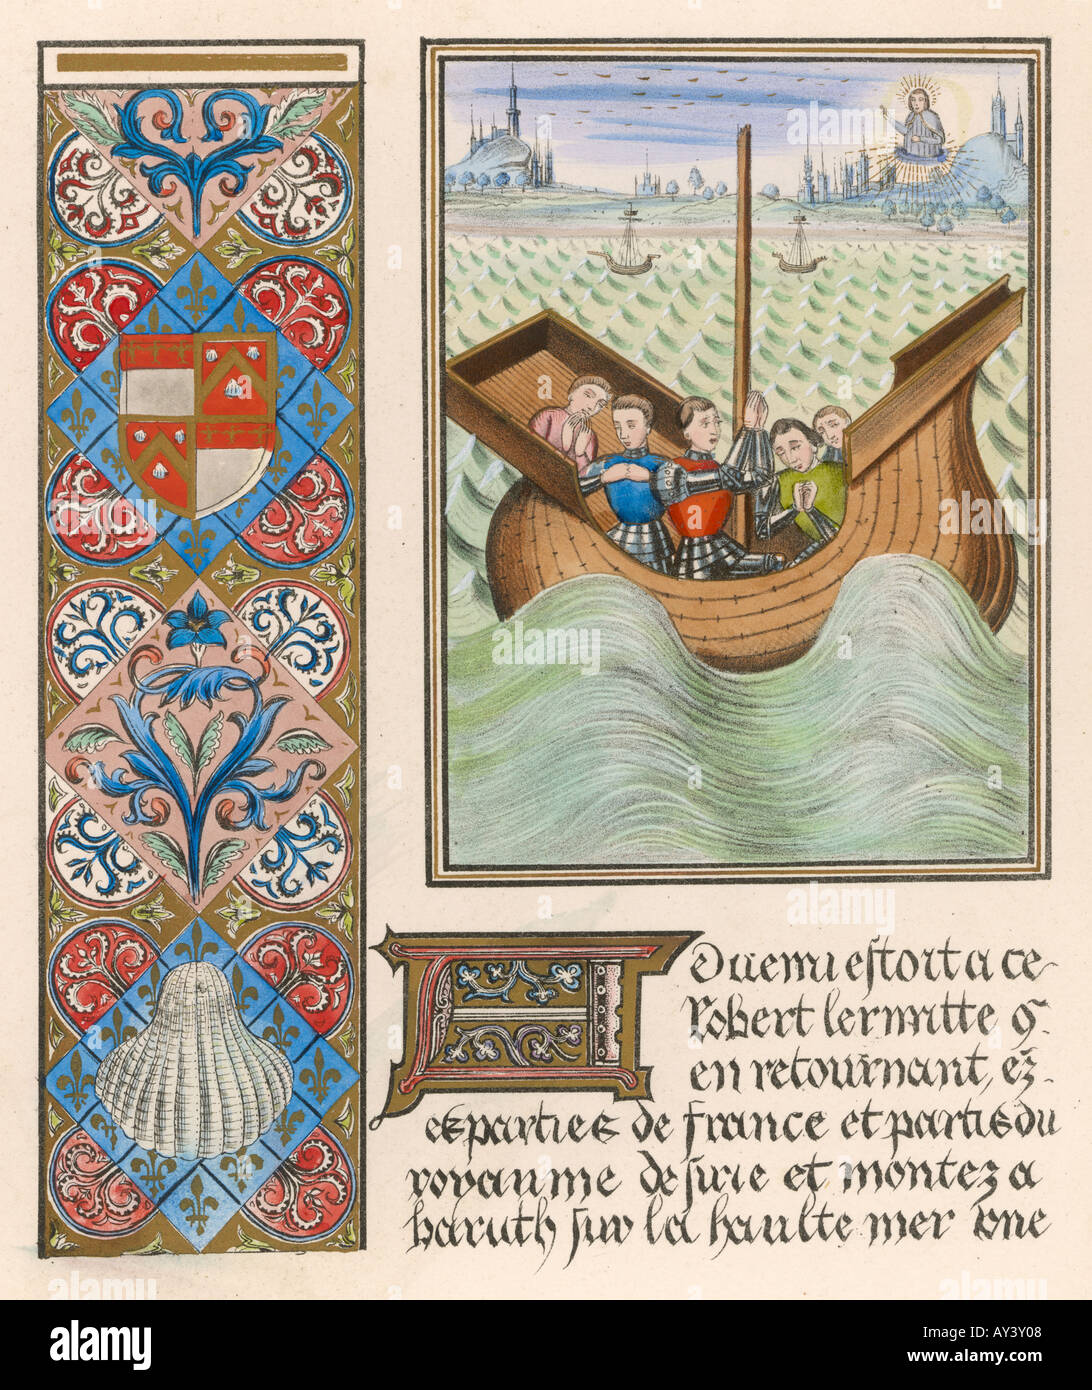 Advemi estoit a ce
Robert lermitte q̄
en retournant, ez
es parties de france et partis du
royaume de surie et montez a
baruth sur la haulte mer une
alamy
Image ID: AY3Y08
www.alamy.com